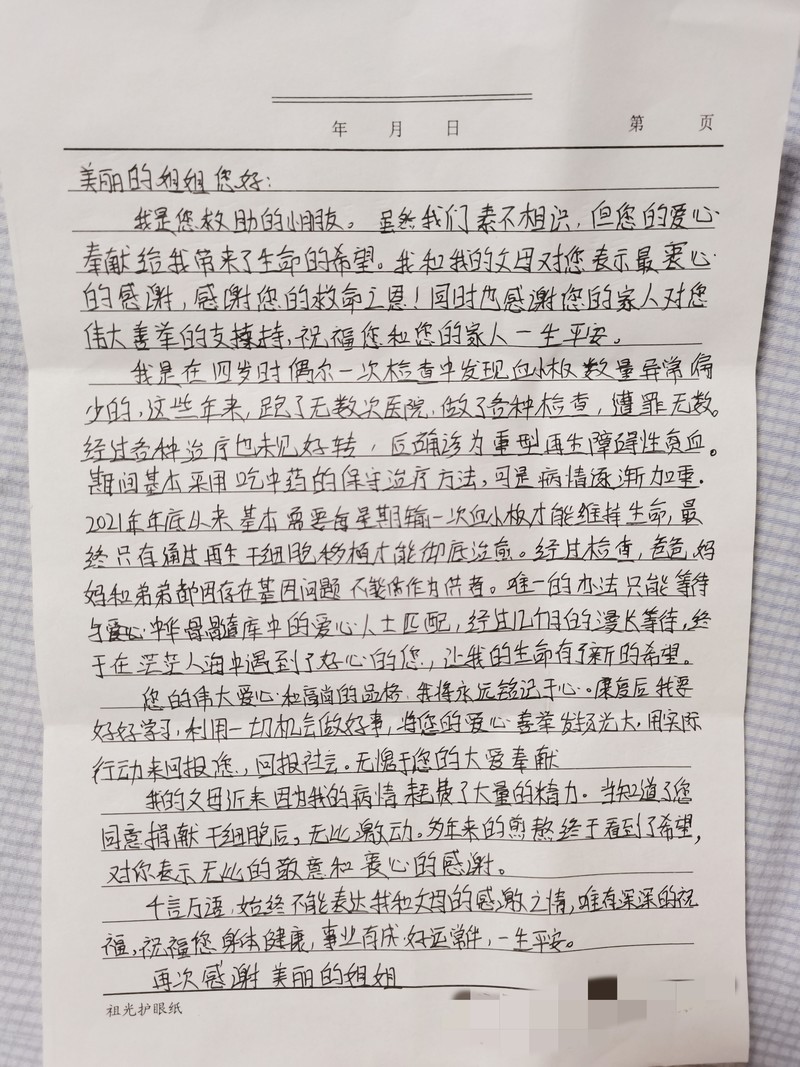 年 月 日 第 页
美丽的姐姐您好:
我是您救助的小朋友。虽然我们素不相识,但您的爱心
奉献给我带来了生命的希望。我和我的父母对您表示最衷心
的感谢,感谢您的救命之恩!同时也感谢您的家人对您
伟大善举的支持,祝福您和您的家人一生平安。
我是在四岁时偶尔一次检查中发现血小板数量异常偏
少的,这些年来,跑了无数次医院,做了各种检查,遭罪无数。
经过各种治疗也未见好转,后确诊为重型再生障碍性贫血。
期间基本采用吃中药的保守治疗方法,可是病情逐渐加重.
2021年年底以来基本需要每星期输一次血小板才能维持生命,最
终只有通过再生干细胞移植才能彻底治愈。经过检查,爸爸,妈
妈和弟弟都因存在基因问题不能作为供者。唯一的办法只能等待
与爱心中华骨髓库中的爱心人士匹配,经过几个月的漫长等待,终
于在茫茫人海中遇到了好心的您,让我的生命有了新的希望。
您的伟大爱心和高尚的品格,我将永远铭记于心。康复后我要
好好学习,利用一切机会做好事,将您的爱心善举发扬光大,用实际
行动来回报您,回报社会。无愧于您的大爱奉献
我的父母近来因为我的病情耗费了大量的精力.当知道了您
同意捐献干细胞后,无比激动。多年来的煎熬终于看到了希望,
对你表示无比的敬意和衷心的感谢。
千言万语,始终不能表达我和父母的感激之情,唯有深深的祝
福,祝福您身体健康,事业有成,好运常伴,一生平安。
再次感谢美丽的姐姐
祖光护眼纸